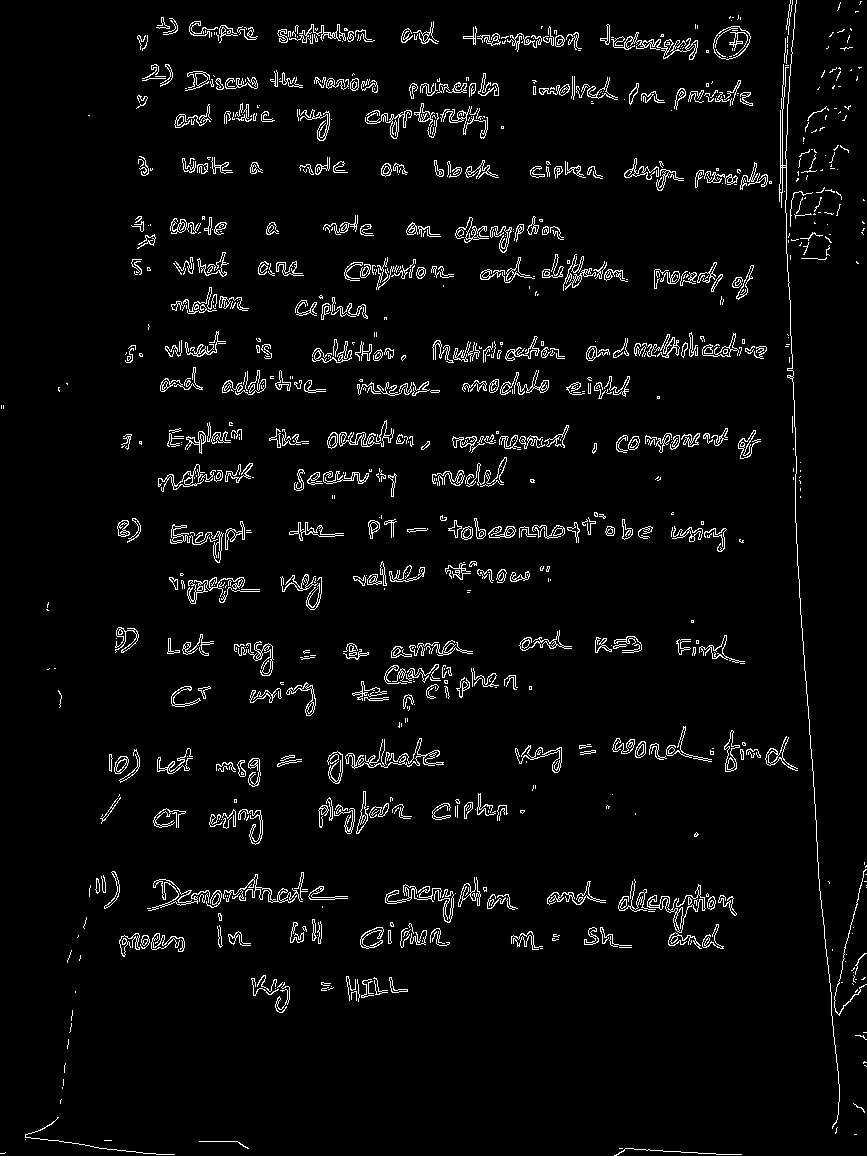 1) Compare substitution and transposition techniques. 7
2) Discuss the various principles involved in private
and public key cryptography.
3. Write a note on block cipher design principles.
4. Write a note on decryption
5. What are confusion and diffusion property of
modern cipher.
6. What is addition, Multiplication and multiplicative
and additive inverse modulo eight.
7. Explain the operation, requirement, component of
network security model.
8) Encrypt the PT - "tobeornott" obe using.
key values "now".
9) Let msg = anna and K=3 Find
CT using ceaser cipher.
10) Let msg = graduate key = word. find
CT using playfair cipher.
11) Demonstrate encryption and decryption
process in hill cipher m = sh and
key = HILL